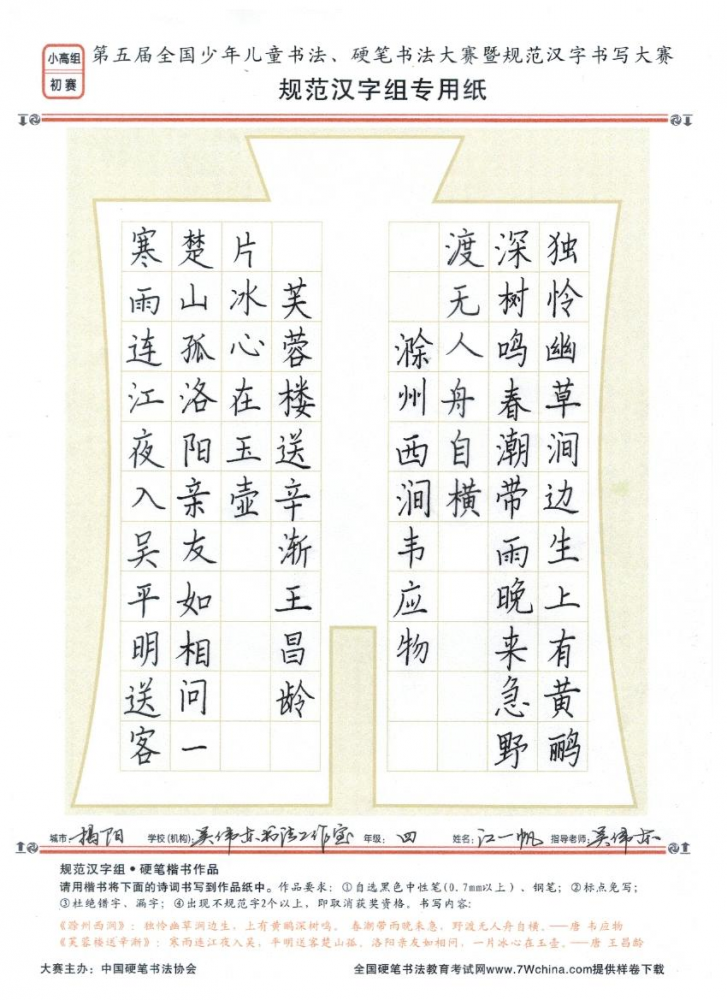 小高组
初赛
第五届全国少年儿童书法、硬笔书法大赛暨规范汉字书写大赛
规范汉字组专用纸
独怜幽草涧边生上有黄鹂
深树鸣春潮带雨晚来急野
渡无人舟自横
滁州西涧韦应物
寒雨连江夜入吴平明送客
楚山孤洛阳亲友如相问一
片冰心在玉壶
芙蓉楼送辛渐王昌龄
城市：揭阳 学校(机构)：吴伟东书法工作室 年级：四 姓名：江一帆 指导老师：吴伟东
规范汉字组•硬笔楷书作品
请用楷书将下面的诗词书写到作品纸中。作品要求：①自选黑色中性笔(0.7mm以上)、钢笔；②标点免写；
③杜绝错字、漏字；④出现不规范字2个以上，即取消获奖资格。书写内容：
《滁州西涧》：独怜幽草涧边生，上有黄鹂深树鸣。 春潮带雨晚来急，野渡无人舟自横。——唐 韦应物
《芙蓉楼送辛渐》：寒雨连江夜入吴，平明送客楚山孤。洛阳亲友如相问，一片冰心在玉壶。——唐 王昌龄
大赛主办：中国硬笔书法协会
全国硬笔书法教育考试网www.7Wchina.com提供样卷下载